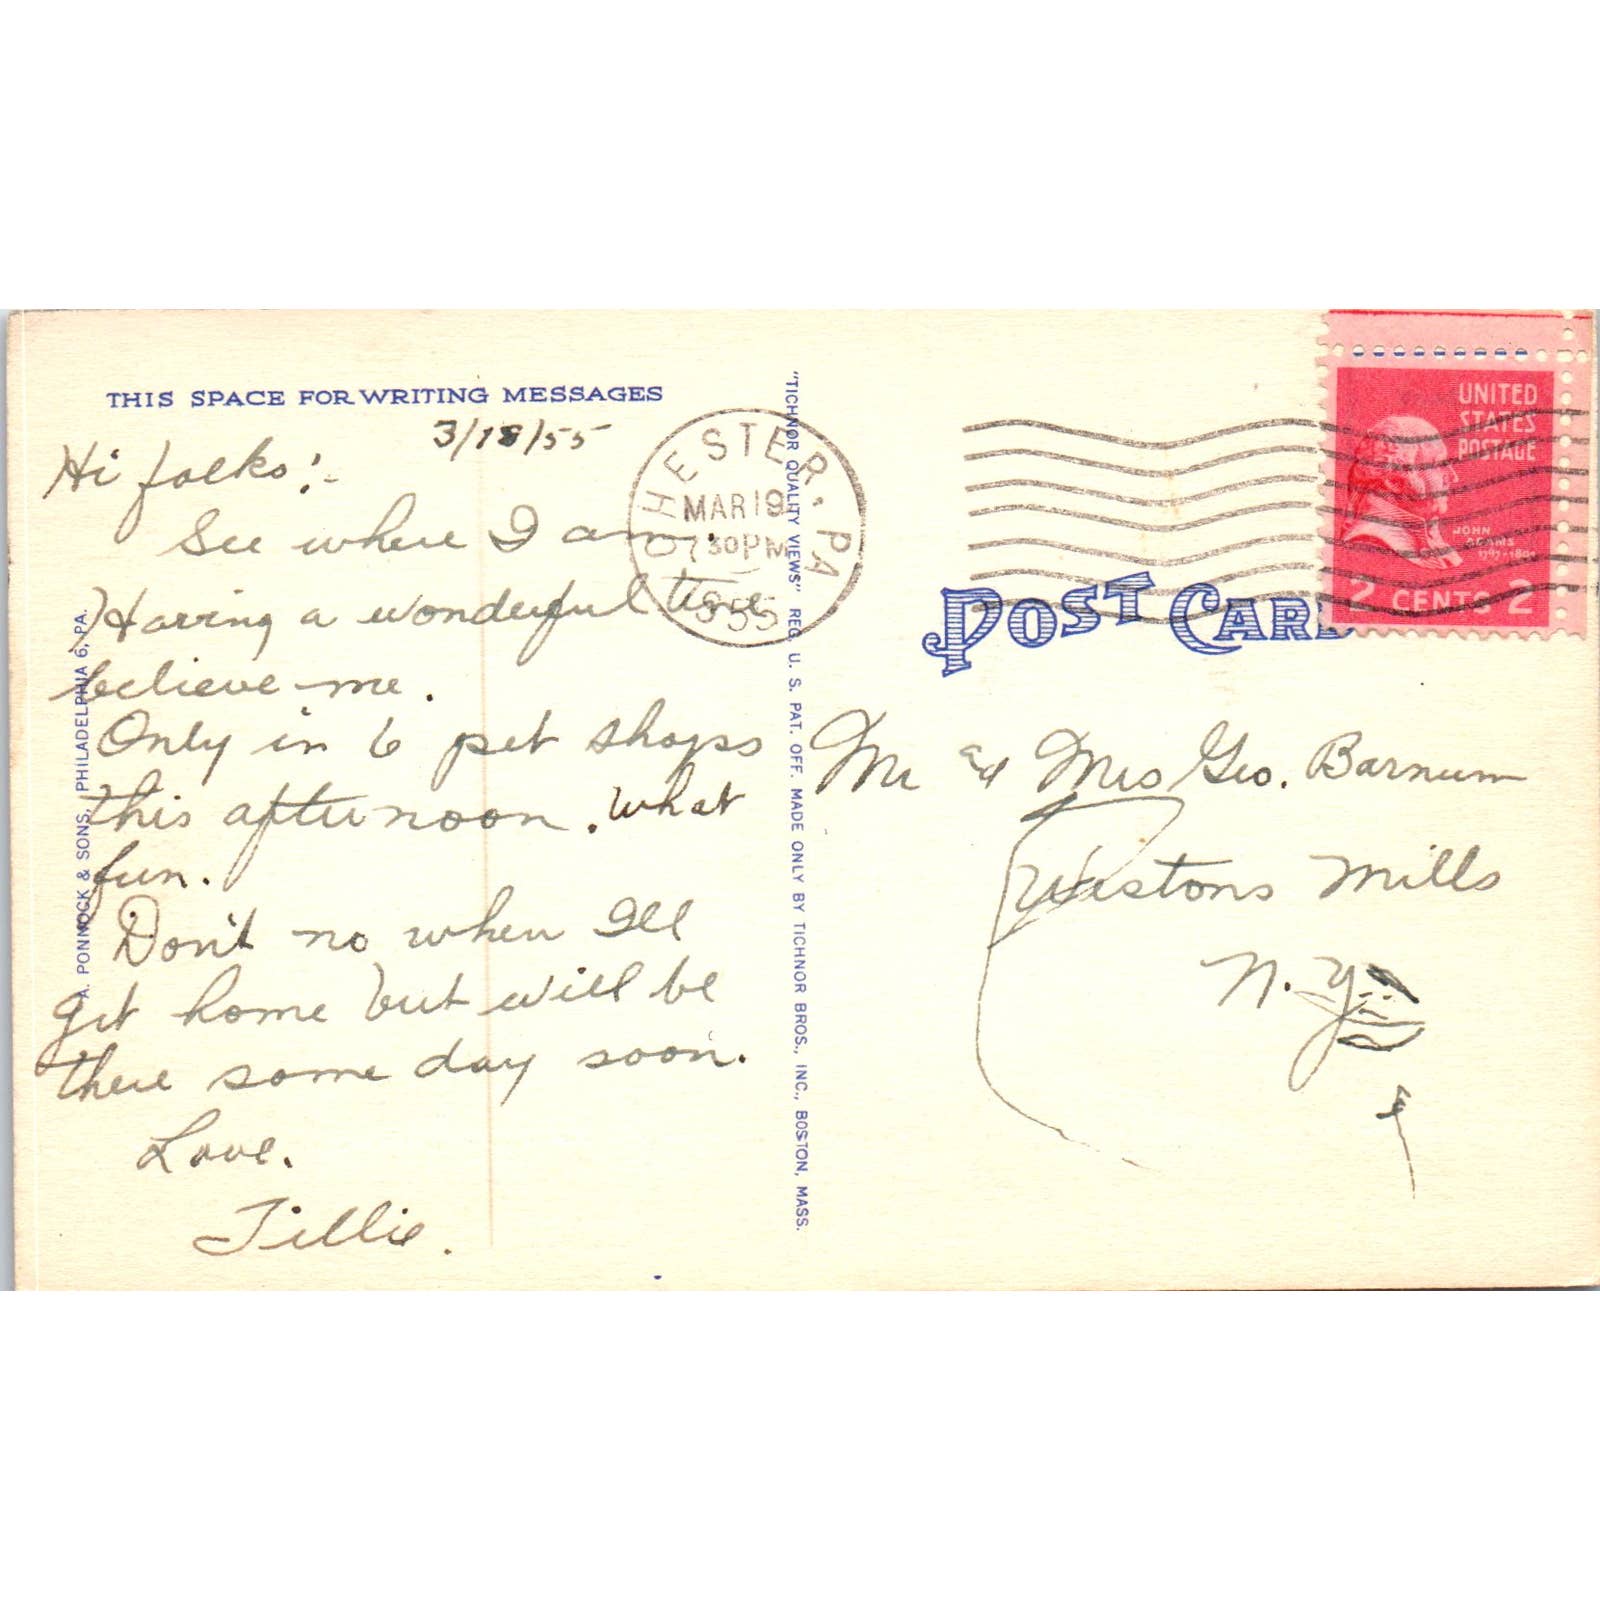 THIS SPACE FOR WRITING MESSAGES
3/18/55
Hi folks!-
See where I am.
Having a wonderful time
believe me.
Only in 6 pet shops
this afternoon. What
fun.
Don't no when Ill
get home but will be
there some day soon.
Love.
Tillie.
A. PONNOCK & SONS, PHILADELPHIA 6, PA.
"TICHNOR QUALITY VIEWS" REG. U. S. PAT. OFF. MADE ONLY BY TICHNOR BROS., INC., BOSTON, MASS.
CHESTER. PA
MAR 19
730PM
1955
POST CARD
UNITED
STATES
POSTAGE
JOHN
ADAMS
1797-1801
2 CENTS 2
Mr and Mrs Geo. Barnum
Westons Mills
N.Y.